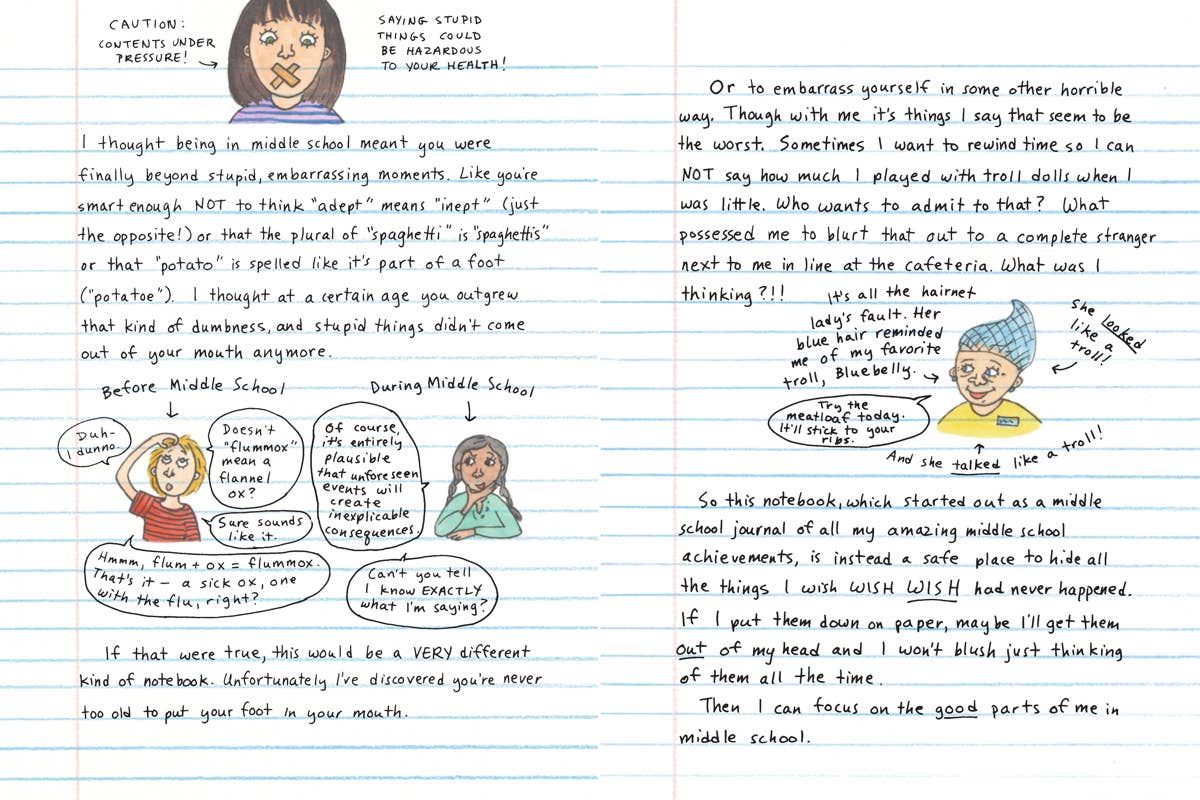 CAUTION:
CONTENTS UNDER
PRESSURE!
SAYING STUPID
THINGS COULD
BE HAZARDOUS
TO YOUR HEALTH!
I thought being in middle school meant you were
finally beyond stupid, embarrassing moments. Like you're
smart enough NOT to think "adept" means "inept" (just
the opposite!) or that the plural of "spaghetti" is "spaghettis"
or that "potato" is spelled like it's part of a foot
("potatoe"). I thought at a certain age you outgrew
that kind of dumbness, and stupid things didn't come
out of your mouth anymore.
Before Middle School
Duh-
I dunno.
Doesn't
"flummox"
mean a
flannel
ox?
Sure sounds
like it.
Hmmm, flum + ox = flummox.
That's it – a sick ox, one
with the flu, right?
During Middle School
Of course,
it's entirely
plausible
that unforeseen
events will
create
inexplicable
consequences.
Can't you tell
I know EXACTLY
what I'm saying?
If that were true, this would be a VERY different
kind of notebook. Unfortunately I've discovered you're never
too old to put your foot in your mouth.
Or to embarrass yourself in some other horrible
way. Though with me it's things I say that seem to be
the worst. Sometimes I want to rewind time so I can
NOT say how much I played with troll dolls when I
was little. Who wants to admit to that? What
possessed me to blurt that out to a complete stranger
next to me in line at the cafeteria. What was I
thinking?!!
It's all the hairnet
lady's fault. Her
blue hair reminded
me of my favorite
troll, Bluebelly.
She looked
like a
troll!
Try the
meatloaf today.
It'll stick to your
ribs.
And she talked like a troll!
So this notebook, which started out as a middle
school journal of all my amazing middle school
achievements, is instead a safe place to hide all
the things I wish WISH WISH had never happened.
If I put them down on paper, maybe I'll get them
out of my head and I won't blush just thinking
of them all the time.
Then I can focus on the good parts of me in
middle school.